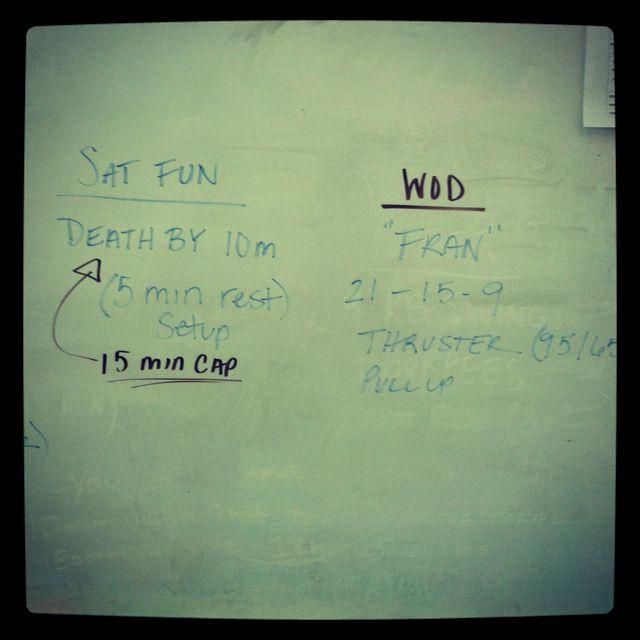 SAT FUN
DEATH BY 10m
(5 min rest)
Setup
15 min CAP
WOD
"FRAN"
21-15-9
THRUSTER (95/65
PULLUP